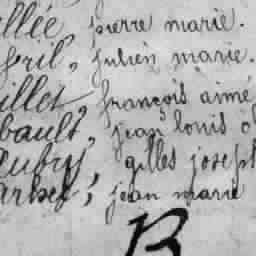 llée, pierre marie.
fril, julien marie.
illet, françois aimé
bault, jean louis
Aubry, gilles joseph
jean marie
B